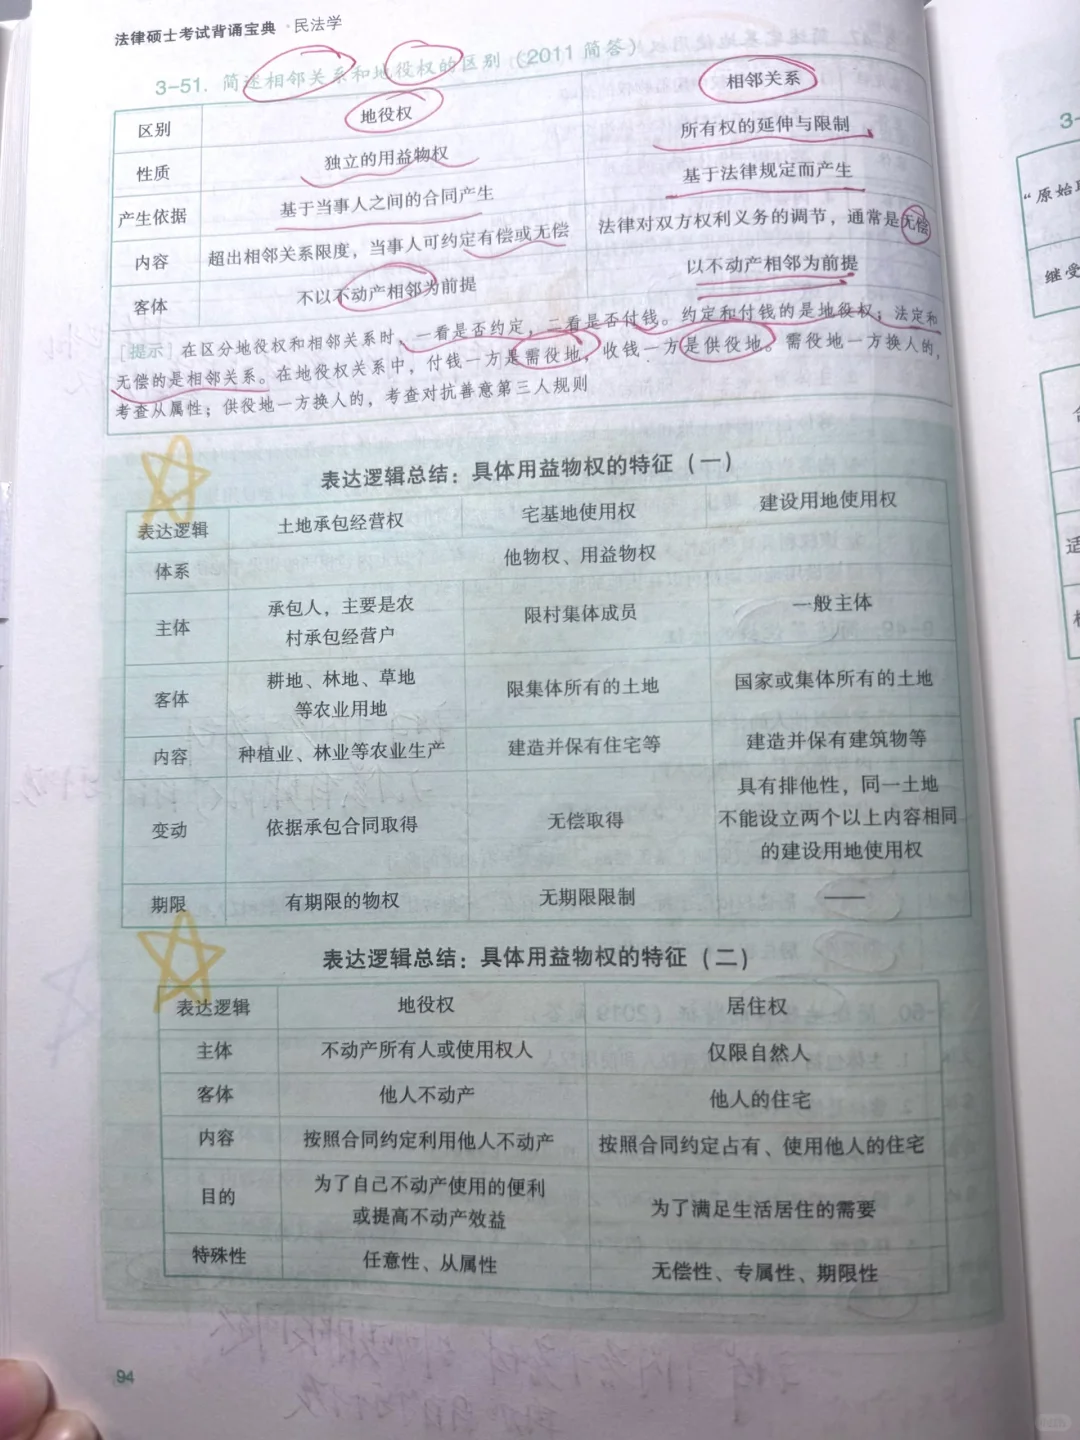 法律硕士考试背诵宝典·民法学
3-51. 简述相邻关系和地役权的区别（2011 简答）
区别 地役权 相邻关系
性质 独立的用益物权 所有权的延伸与限制
产生依据 基于当事人之间的合同产生 基于法律规定而产生
内容 超出相邻关系限度，当事人可约定有偿或无偿 法律对双方权利义务的调节，通常是无偿
客体 不以不动产相邻为前提 以不动产相邻为前提
［提示］在区分地役权和相邻关系时，一看是否约定，二看是否付钱。约定和付钱的是地役权；法定和
无偿的是相邻关系。在地役权关系中，付钱一方是需役地，收钱一方是供役地。需役地一方换人的，
考查从属性；供役地一方换人的，考查对抗善意第三人规则
表达逻辑总结：具体用益物权的特征（一）
表达逻辑 土地承包经营权 宅基地使用权 建设用地使用权
体系 他物权、用益物权
主体 承包人，主要是农
村承包经营户 限村集体成员 一般主体
客体 耕地、林地、草地
等农业用地 限集体所有的土地 国家或集体所有的土地
内容 种植业、林业等农业生产 建造并保有住宅等 建造并保有建筑物等
变动 依据承包合同取得 无偿取得 具有排他性，同一土地
不能设立两个以上内容相同
的建设用地使用权
期限 有期限的物权 无期限限制 ——
表达逻辑总结：具体用益物权的特征（二）
表达逻辑 地役权 居住权
主体 不动产所有人或使用权人 仅限自然人
客体 他人不动产 他人的住宅
内容 按照合同约定利用他人不动产 按照合同约定占有、使用他人的住宅
目的 为了自己不动产使用的便利
或提高不动产效益 为了满足生活居住的需要
特殊性 任意性、从属性 无偿性、专属性、期限性
94
3-
“原始取
继受
适